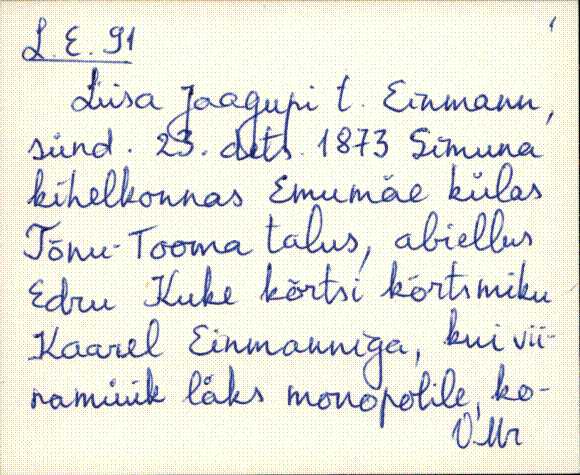 L. E. 91
1
Liisa Jaagupi t. Einmann,
sünd. 23. dets. 1873 Simuna
kihelkonnas Emumäe külas
Tõnu-Tooma talus, abiellus
Edru Kuke kõrtsi kõrtsmiku
Kaarel Einmanniga, kui vii-
namüük läks monopolile, ko-
V. Mr